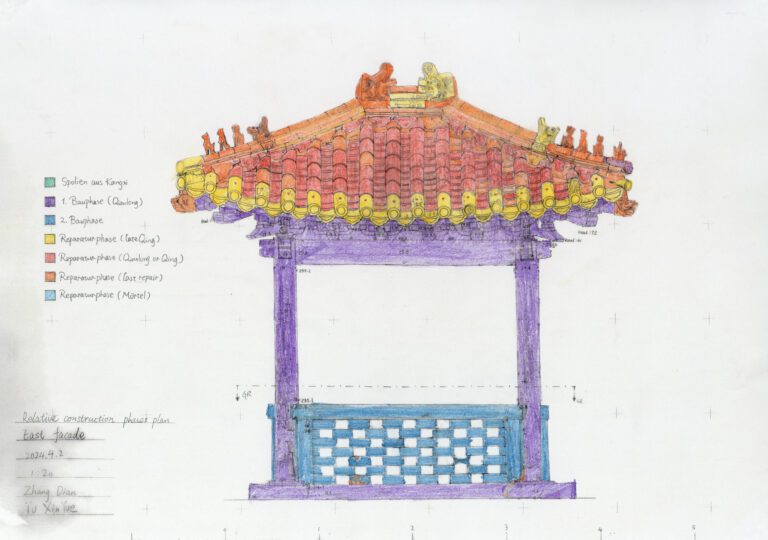 Spolien aus Kangxi
1. Bauphase (Qianlong)
2. Bauphase
Reparaturphase (late Qing)
Reparaturphase (Qianlong or Qing)
Reparaturphase (last repair)
Reparaturphase (Mörtel)
Relative construction phases plan
East facade
2024.4.2
1:20
Zhang Dian
Yu Xin Yue
0 1 2 3 4 5